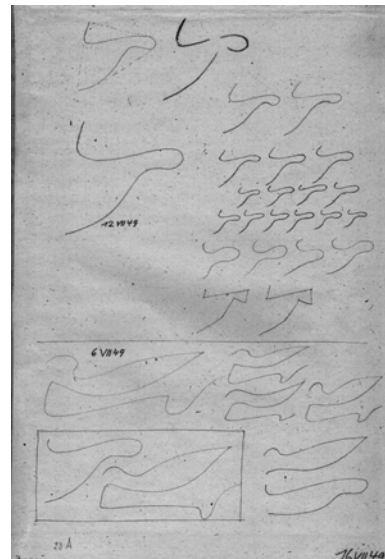 12 VII 49
6 VII 49
23 A
16 VII 49